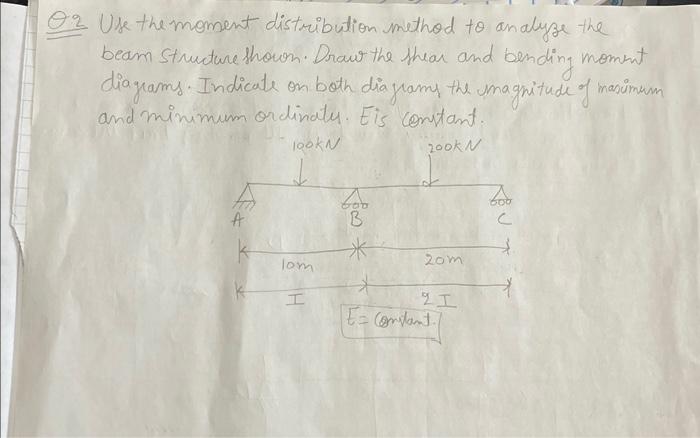 Q2 Use the moment distribution method to analyze the
beam structure shown. Draw the shear and bending moment
diagrams. Indicate on both diagrams the magnitude of maximum
and minimum ordinates. E is constant.
100kN 200kN
A B C
10m 20m
I 2I
E = Constant.